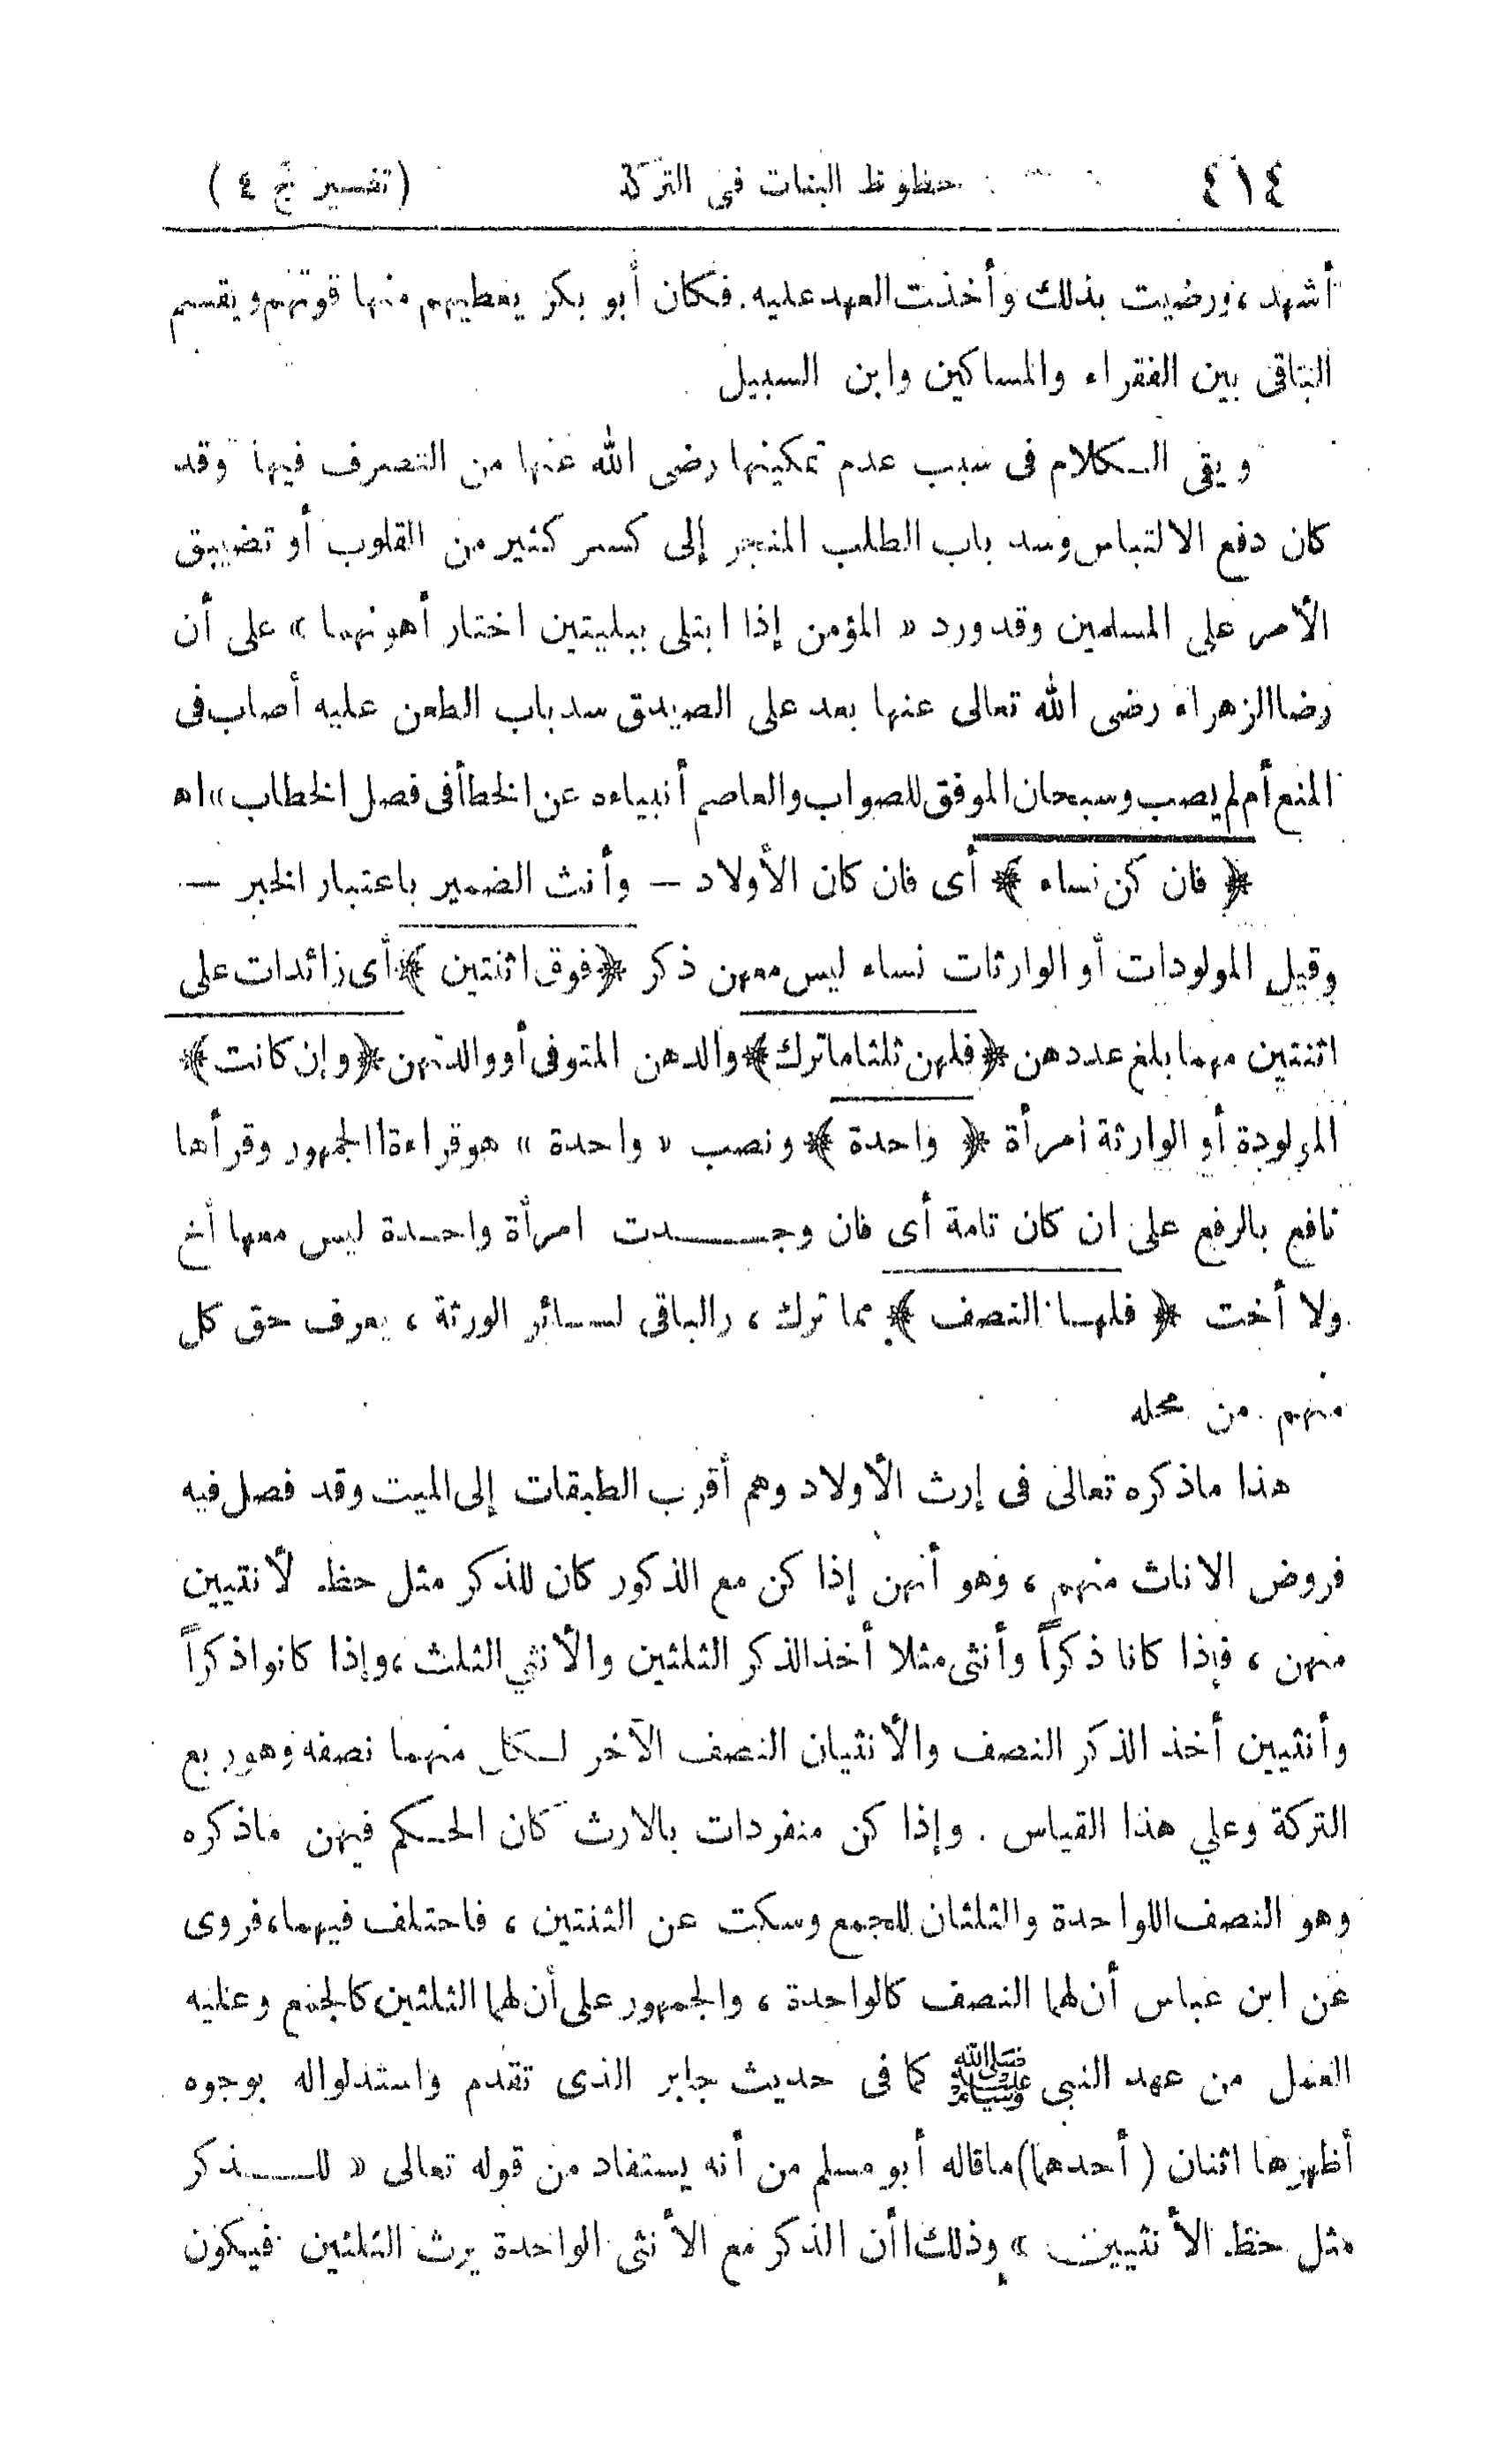 ٤١٤ حظوظ البنات فى التركة (تفسير ج ٤)
أشهد ، ورضيت بذلك وأخذت العهد عليه. فكان أبو بكر يعطيهم منها قوتهم ويقسم
الباقى بين الفقراء والمساكين وابن السبيل
وبقى الـكلام فى سبب عدم تمكينها رضى الله عنها من التصرف فيها وقد
كان دفع الالتباس وسد باب الطلب المنجر إلى كسر كثير من القلوب أو تضييق
الأمر على المسلمين وقد ورد « المؤمن إذا ابتلى ببليتين اختار أهونهما » على أن
رضا الزهراء رضى الله تعالى عنها بعد على الصديق سد باب الطعن عليه أصاب فى
المنع أم لم يصب وسبحان الموفق للصواب والعاصم أنبياءه عن الخطأ فى فصل الخطاب» اهـ
﴿ فان كن نساء ﴾ أى فان كان الأولاد – وأنث الضمير باعتبار الخبر –
وقيل المولودات أو الوارثات نساء ليس معهن ذكر ﴿فوق اثنتين ﴾أى زائدات على
اثنتين مهما بلغ عددهن ﴿فلهن ثلثا ما ترك﴾ والدهن المتوفى أو والدتهن ﴿وإن كانت﴾
المولودة أو الوارثة امرأة ﴿ واحدة ﴾ ونصب « واحدة » هو قراءة الجمهور وقرأها
نافع بالرفع على ان كان تامة أى فان وجـــدت امرأة واحـدة ليس معها أخ
ولا أخت ﴿ فلهـا النصف ﴾ مما ترك ، والباقى لسـائر الورثة ، يعرف حق كل
منهم من محله
هذا ماذكره تعالى فى إرث الأولاد وهم أقرب الطبقات إلى الميت وقد فصل فيه
فروض الاناث منهم ، وهو أنهن إذا كن مع الذكور كان للذكر مثل حظ لأنثيين
منهن ، فإذا كانا ذكراً وأنثى مثلا أخذ الذكر الثلثين والأنثي الثلث ، وإذا كانوا ذكراً
وأنثيين أخذ الذكر النصف والأنثيان النصف الآخر لـكل منهما نصفه وهو ربع
التركة وعلي هذا القياس . وإذا كن منفردات بالارث كان الحـكم فيهن ماذكره
وهو النصف للواحدة والثلثان للجمع وسكت عن الثنتين ، فاختلف فيهما، فروى
عن ابن عباس أن لهما النصف كالواحدة ، والجمهور على أن لهما الثلثين كالجمع وعليه
العمل من عهد النبى ﷺ كما فى حديث جابر الذى تقدم واستدلوا له بوجوه
أظهرها اثنان ( أحدهما) ماقاله أبو مسلم من أنه يستفاد من قوله تعالى « للـــذكر
مثل حظ الأنثيين » وذلك أن الذكر مع الأنثى الواحدة يرث الثلثين فيكون